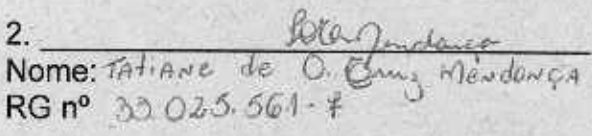 2. Mendonça
Nome: TATIANE de O. Cruz MENDONÇA
RG nº 33.025.561-7